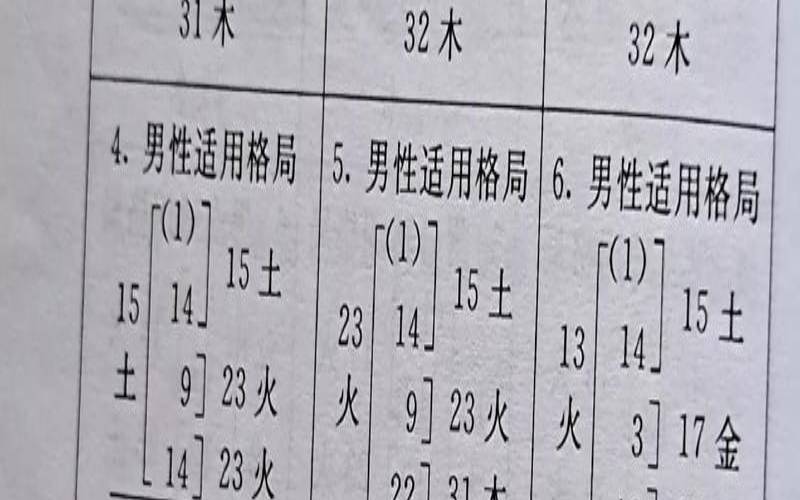 31木
32木
32木
4. 男性适用格局
(1)
15土
15
14
土
9
23火
14
23火
5. 男性适用格局
(1)
15土
23
14
火
9
23火
22
31木
6. 男性适用格局
(1)
15土
13
14
火
3
17金